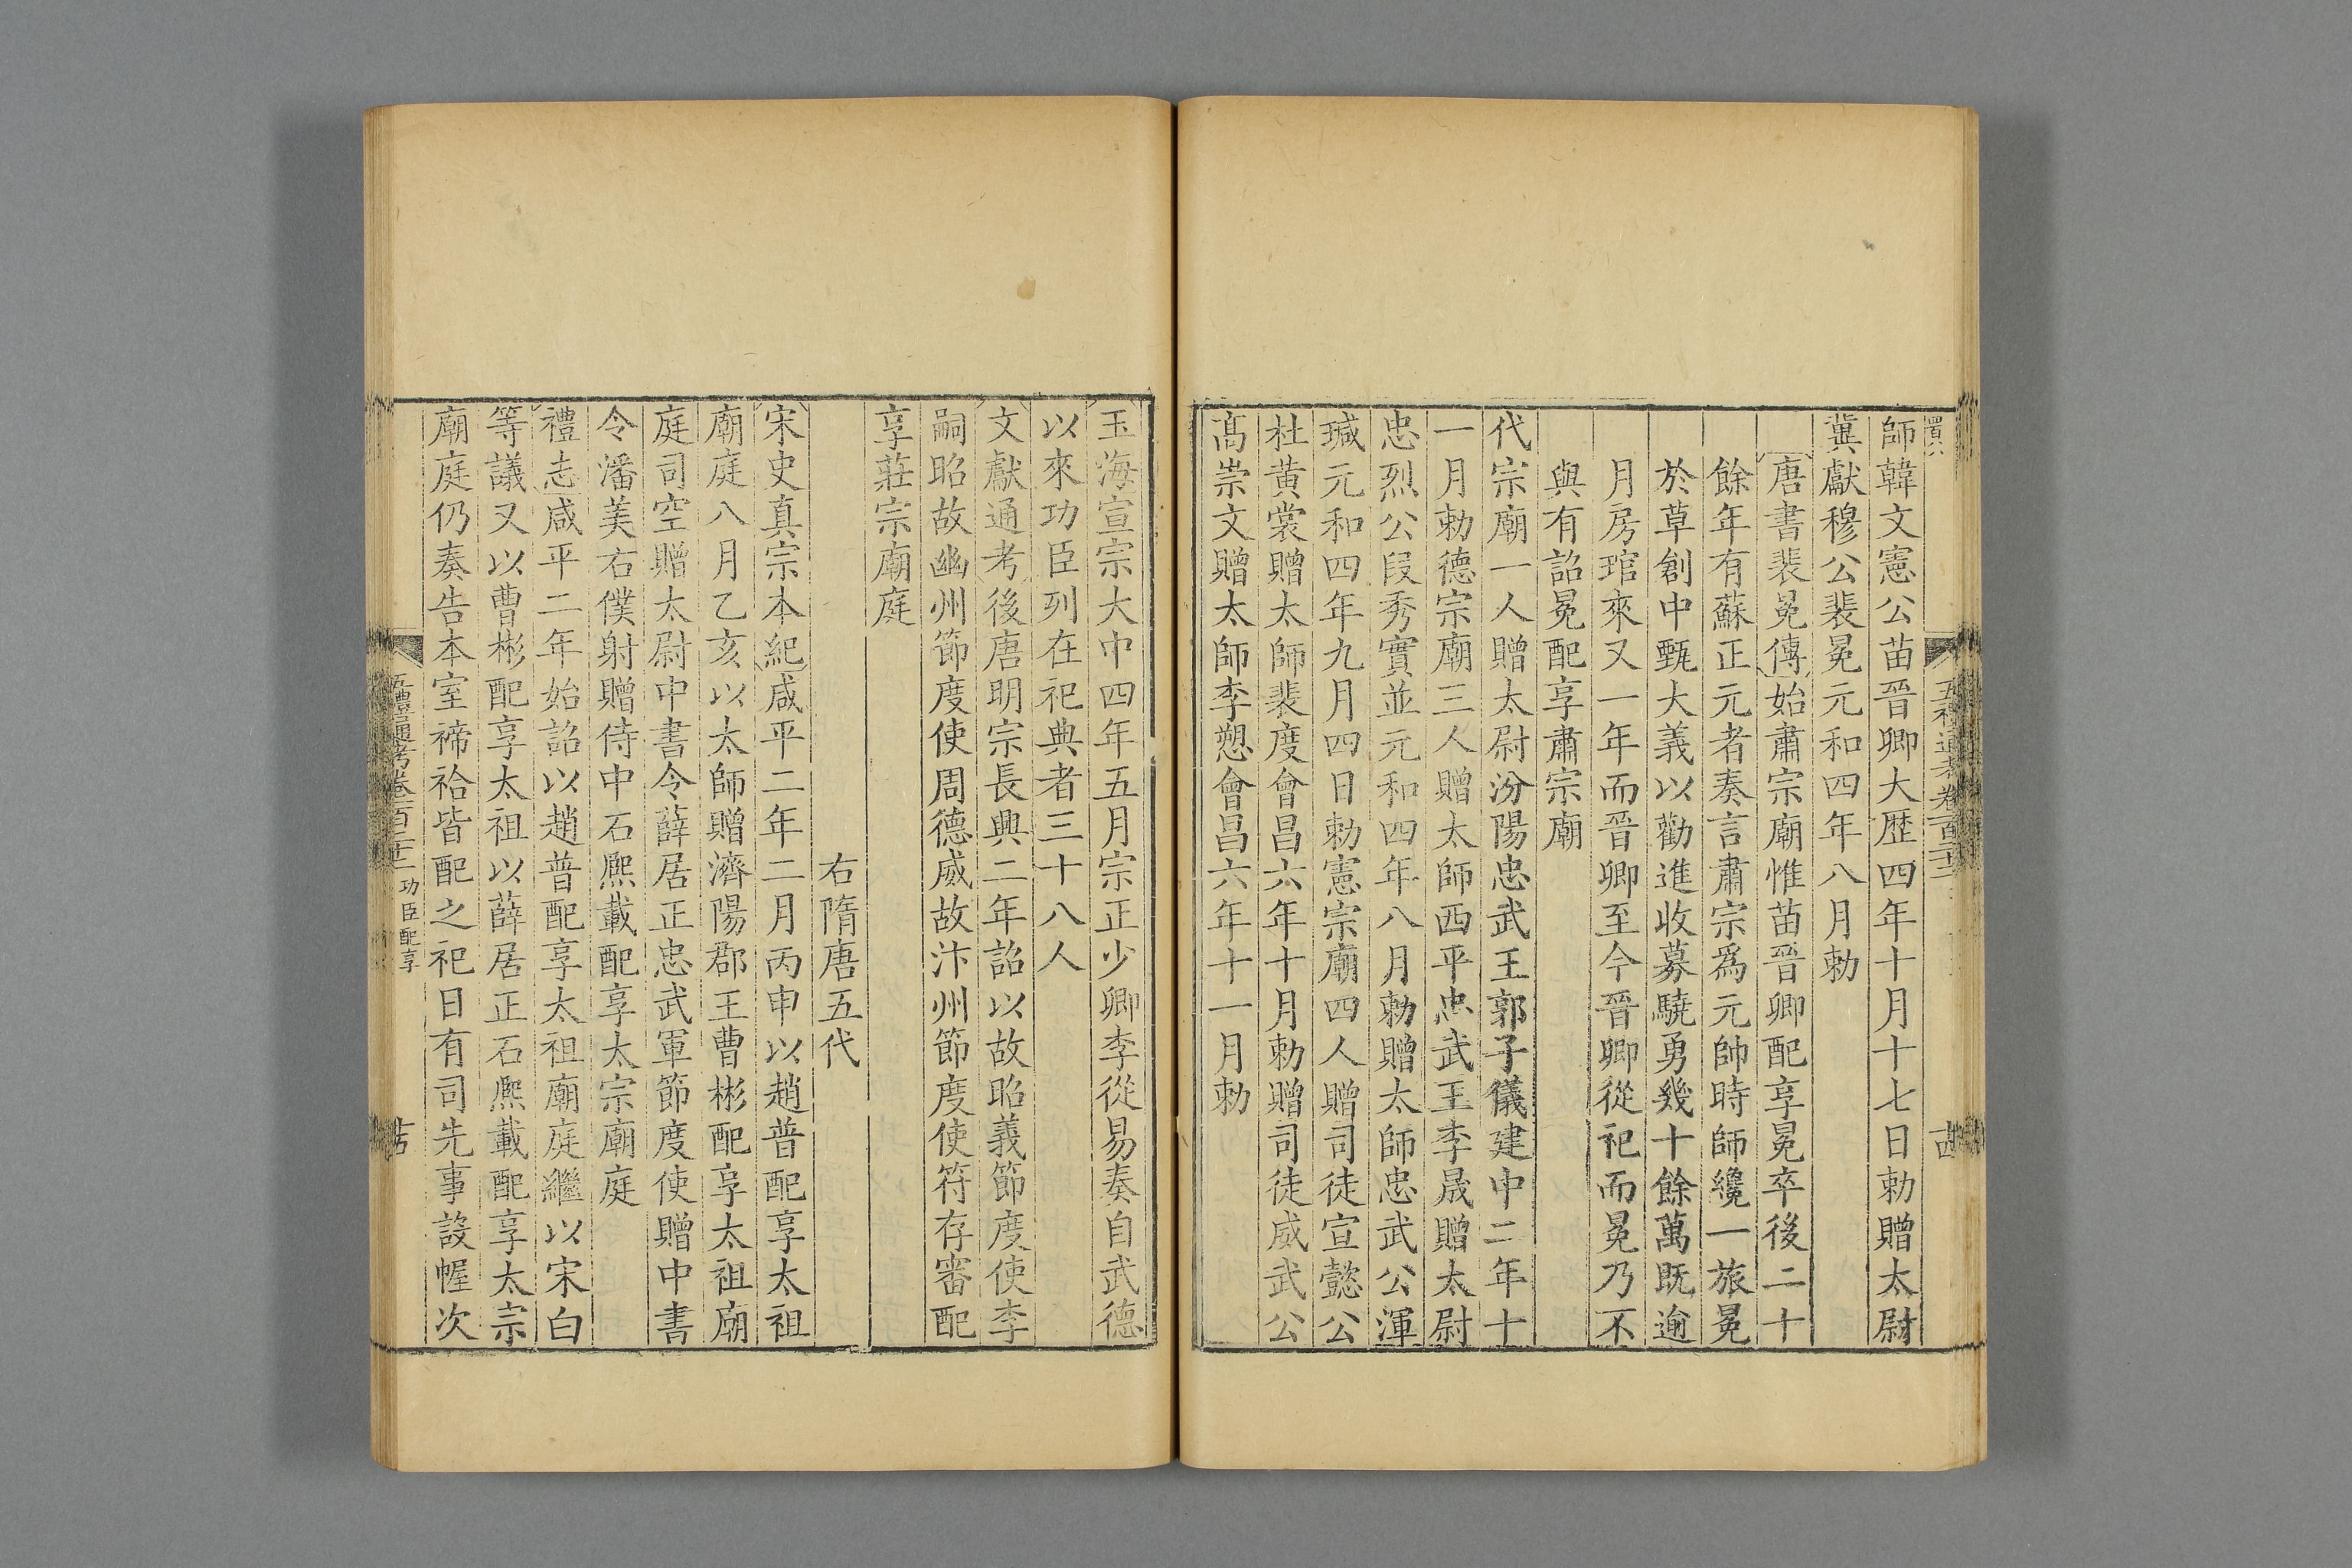 師韓文憲公苗晉卿大歷四年十月十七日勅贈太尉
冀獻穆公裴冕元和四年八月勅
唐書裴冕傳始肅宗廟惟苗晉卿配享冕卒後二十
餘年有蘇正元者奏言肅宗爲元帥時師纔一旅冕
於草創中甄大義以勸進收募驍勇幾十餘萬既逾
月房琯來又一年而晉卿至今晉卿從祀而冕乃不
與有詔冕配享肅宗廟
代宗廟一人贈太尉汾陽忠武王郭子儀建中二年十
一月勅德宗廟三人贈太師西平忠武王李晟贈太尉
忠烈公段秀實並元和四年八月勅贈太師忠武公渾
瑊元和四年九月四日勅憲宗廟四人贈司徒宣懿公
杜黃裳贈太師裴度會昌六年十月勅贈司徒威武公
髙崇文贈太師李愬會昌六年十一月勅
玉海宣宗大中四年五月宗正少卿李從易奏自武德
以來功臣列在祀典者三十八人
文獻通考後唐明宗長興二年詔以故昭義節度使李
嗣昭故幽州節度使周德威故汴州節度使符存審配
享莊宗廟庭
右隋唐五代
宋史真宗本紀咸平二年二月丙申以趙普配享太祖
廟庭八月乙亥以太師贈濟陽郡王曹彬配享太祖廟
庭司空贈太尉中書令薛居正忠武軍節度使贈中書
令潘美右僕射贈侍中石熙載配享太宗廟庭
禮志咸平二年始詔以趙普配享太祖廟庭繼以宋白
等議又以曹彬配享太祖以薛居正石熙載配享太宗
廟庭仍奏告本室禘祫皆配之祀日有司先事設幄次
功臣配享